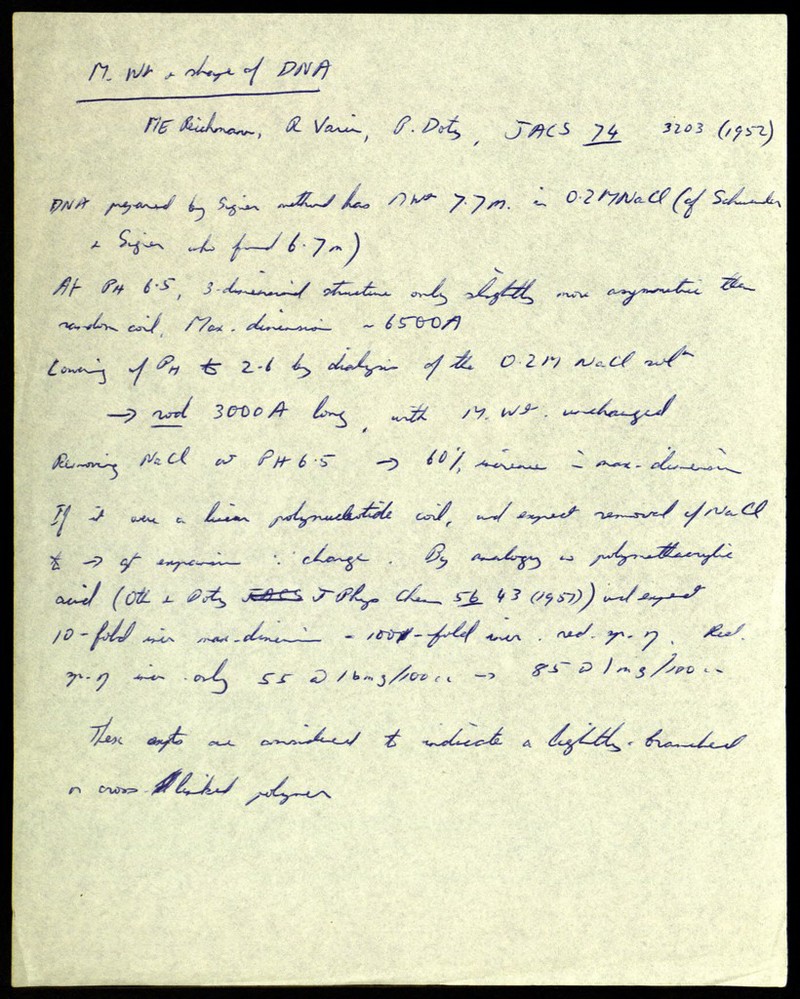 M. Wt + shape of DNA
ME Reichmann, R Varin, P. Doty, JACS 74 3203 (1952)
DNA prepared by Signer method has M Wt 7.7 m. in 0.2M NaCl (cf Schwander
+ Signer who found 6.7 m)
At PH 6.5, 3-dimensional structure only slightly more asymmetric than
random coil. Max. dimension ~ 6500A
Lowering of PH to 2.6 by dialysis of the 0.2M NaCl soln
→ rod 3000A long, with M. Wt. unchanged
Removing NaCl at PH 6.5 → 60% increase in max-dimension
If it were a linear polynucleotide coil, wd expect removal of NaCl
to → gt expansion ∵ charge. By analogy w polymethacrylic
acid (Oth + Doty JACS J Phys Chem 56 43 (1952)) wd expect
10-fold incr max-dimension - 100-fold incr. red. sp. η. Red.
sp. η incr. only 55 @ 16mg/100cc → 85 @ 1mg/100cc
These expts are considered to indicate a lightly-branched
or cross-linked polymer